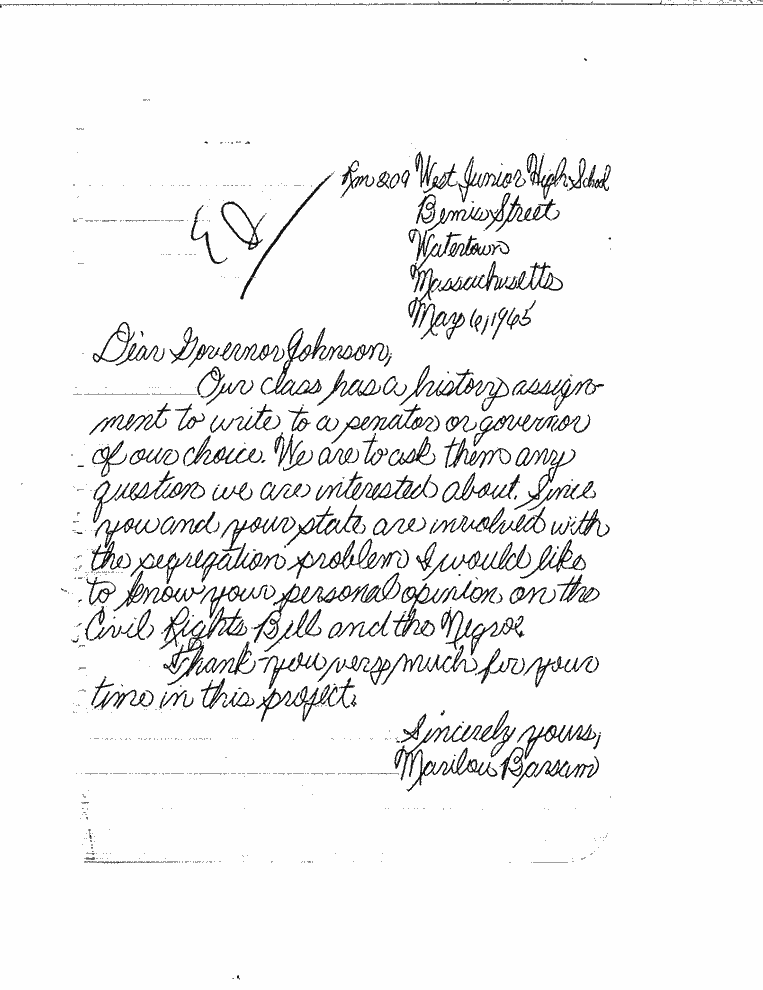 Rm 209 West Junior High School
Bemis Street
Watertown
Massachusetts
May 6, 1965
Dear Governor Johnson,
Our class has a history assign-
ment to write to a senator or governor
of our choice. We are to ask them any
question we are interested about. Since
you and your state are involved with
the segregation problem I would like
to know your personal opinion on the
Civil Rights Bill and the Negroe.
Thank-you very much for your
time in this project.
Sincerely yours,
Marilou Barsam